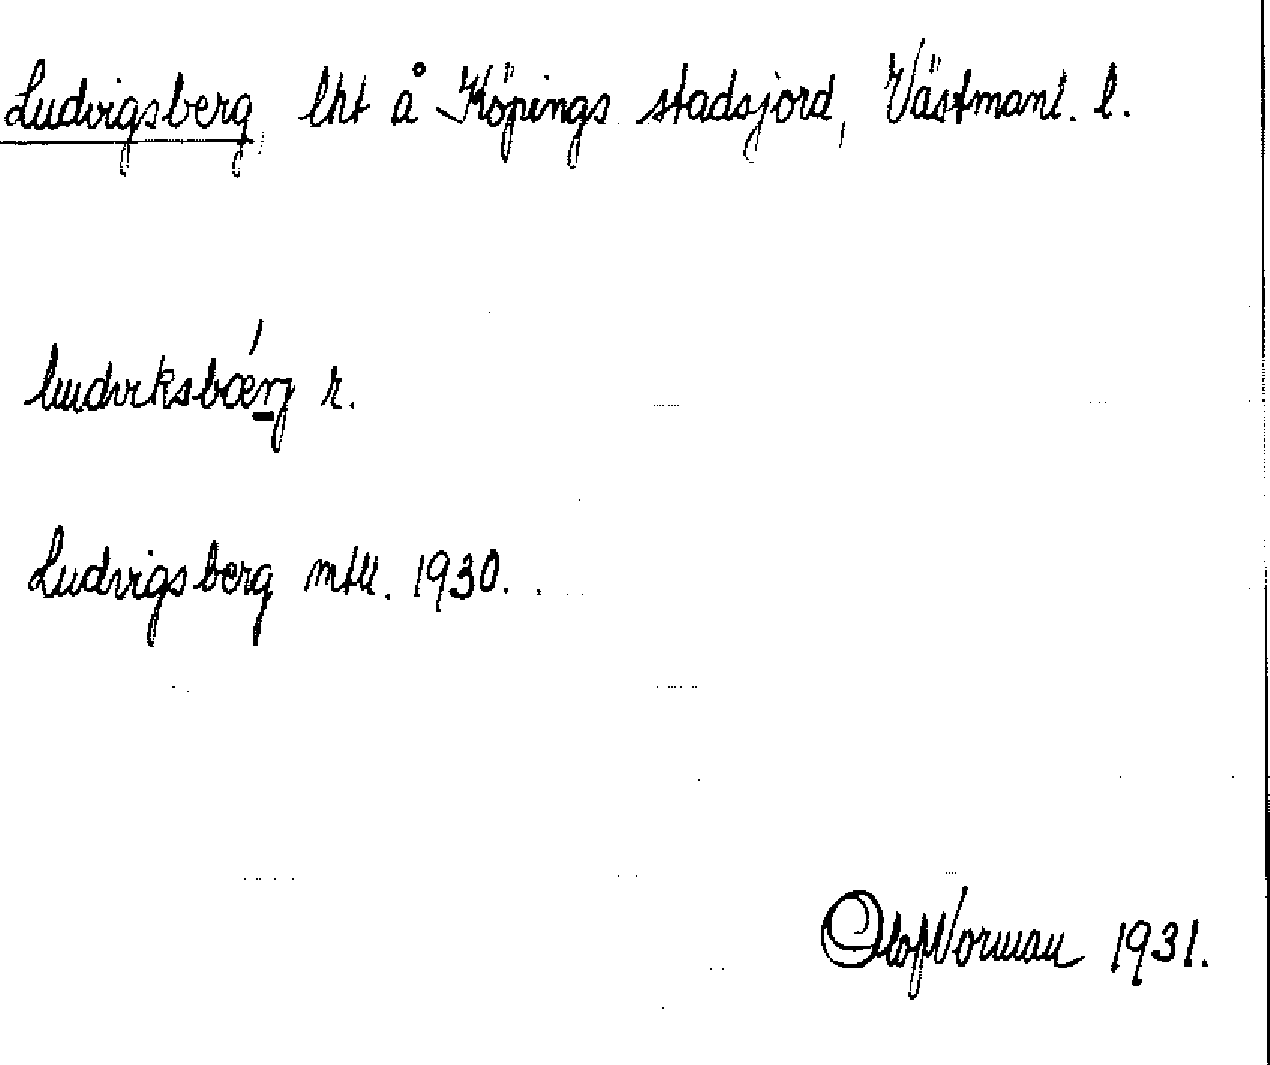 Ludvigsberg, lht å Köpings stadsjord, Västmanl. l.
ludvıksbœ́rj r.
Ludvigsberg mtll. 1930.
Olof Norman 1931.